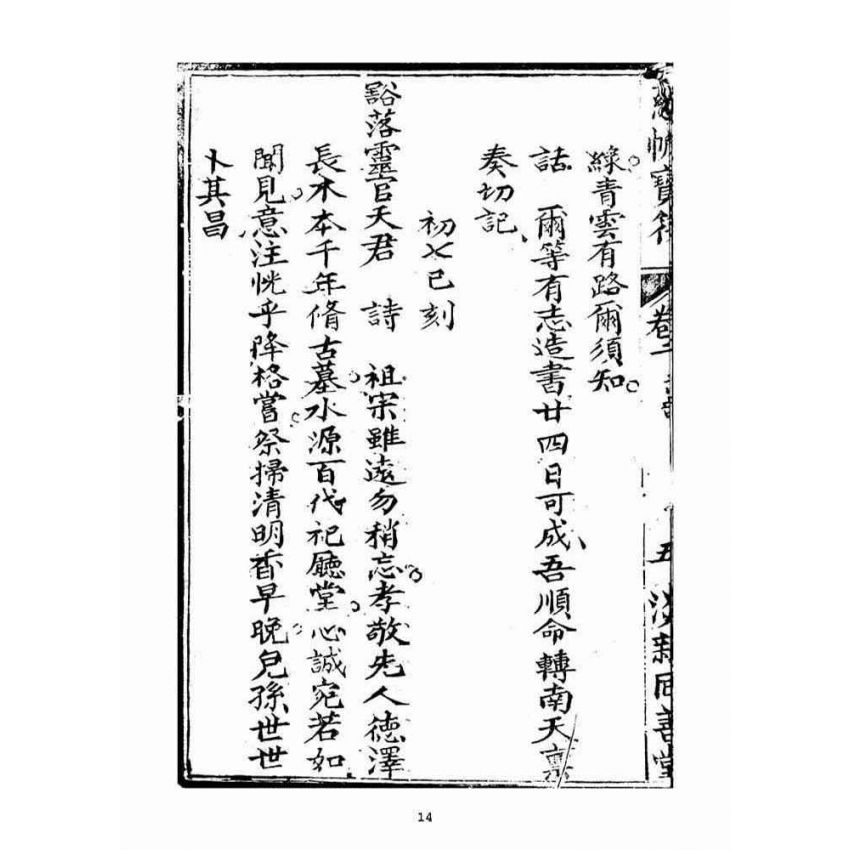 綠青雲有路爾須知。
話 爾等有志造書廿四日可成、吾順命轉南天稟
奏切記、
初七巳刻
豁落靈官天君 詩 祖宗雖遠勿稍忘。孝敬先人德澤
長。木本千年脩古墓。水源百代祀廳堂。心誠宛若如
聞見。意注恍乎降格嘗。祭掃清明香早晚。兒孫世世
卜其昌
寶筏
卷二
五
淡新同善堂
14